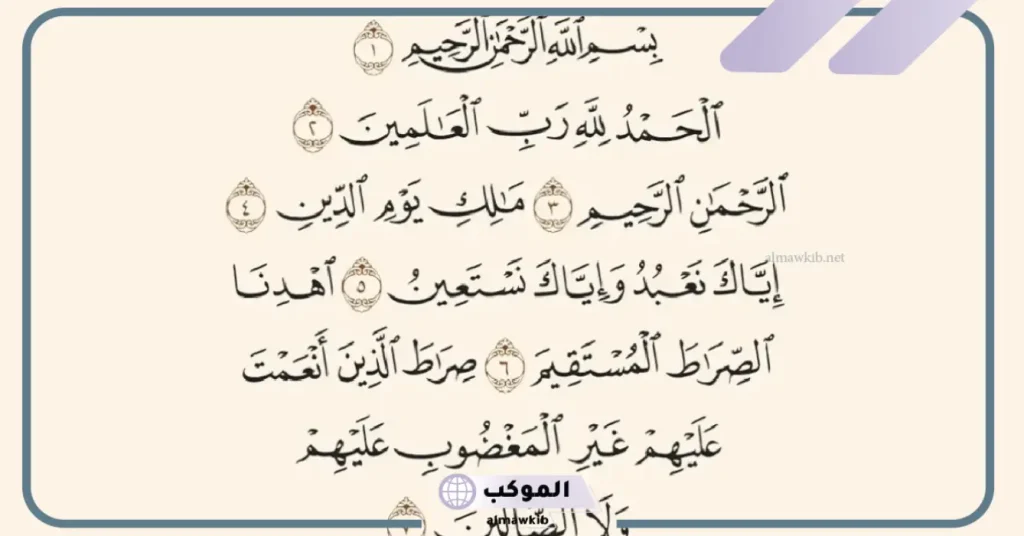 بِسْمِ ٱللَّهِ ٱلرَّحْمَٰنِ ٱلرَّحِيمِ ١
ٱلْحَمْدُ لِلَّهِ رَبِّ ٱلْعَٰلَمِينَ ٢
ٱلرَّحْمَٰنِ ٱلرَّحِيمِ ٣ مَٰلِكِ يَوْمِ ٱلدِّينِ ٤
almawkib.net
إِيَّاكَ نَعْبُدُ وَإِيَّاكَ نَسْتَعِينُ ٥ ٱهْدِنَا
ٱلصِّرَٰطَ ٱلْمُسْتَقِيمَ ٦ صِرَٰطَ ٱلَّذِينَ أَنْعَمْتَ
عَلَيْهِمْ غَيْرِ ٱلْمَغْضُوبِ عَلَيْهِمْ
الموكب
almawkib
وَلَا ٱلضَّآلِّينَ ٧